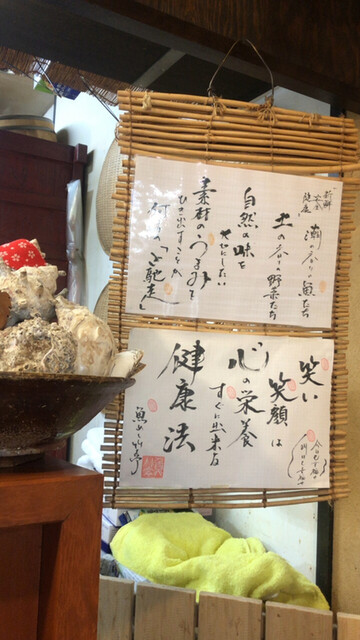 新鮮
安全
健康
潮の香りの魚たち
土の香りの野菜たち
自然の味を
大切にしたい
素材のうまみを
ひき出すことが
何よりの「ご馳走」
笑い
笑顔は
心の栄養
すぐに出来る
健康法